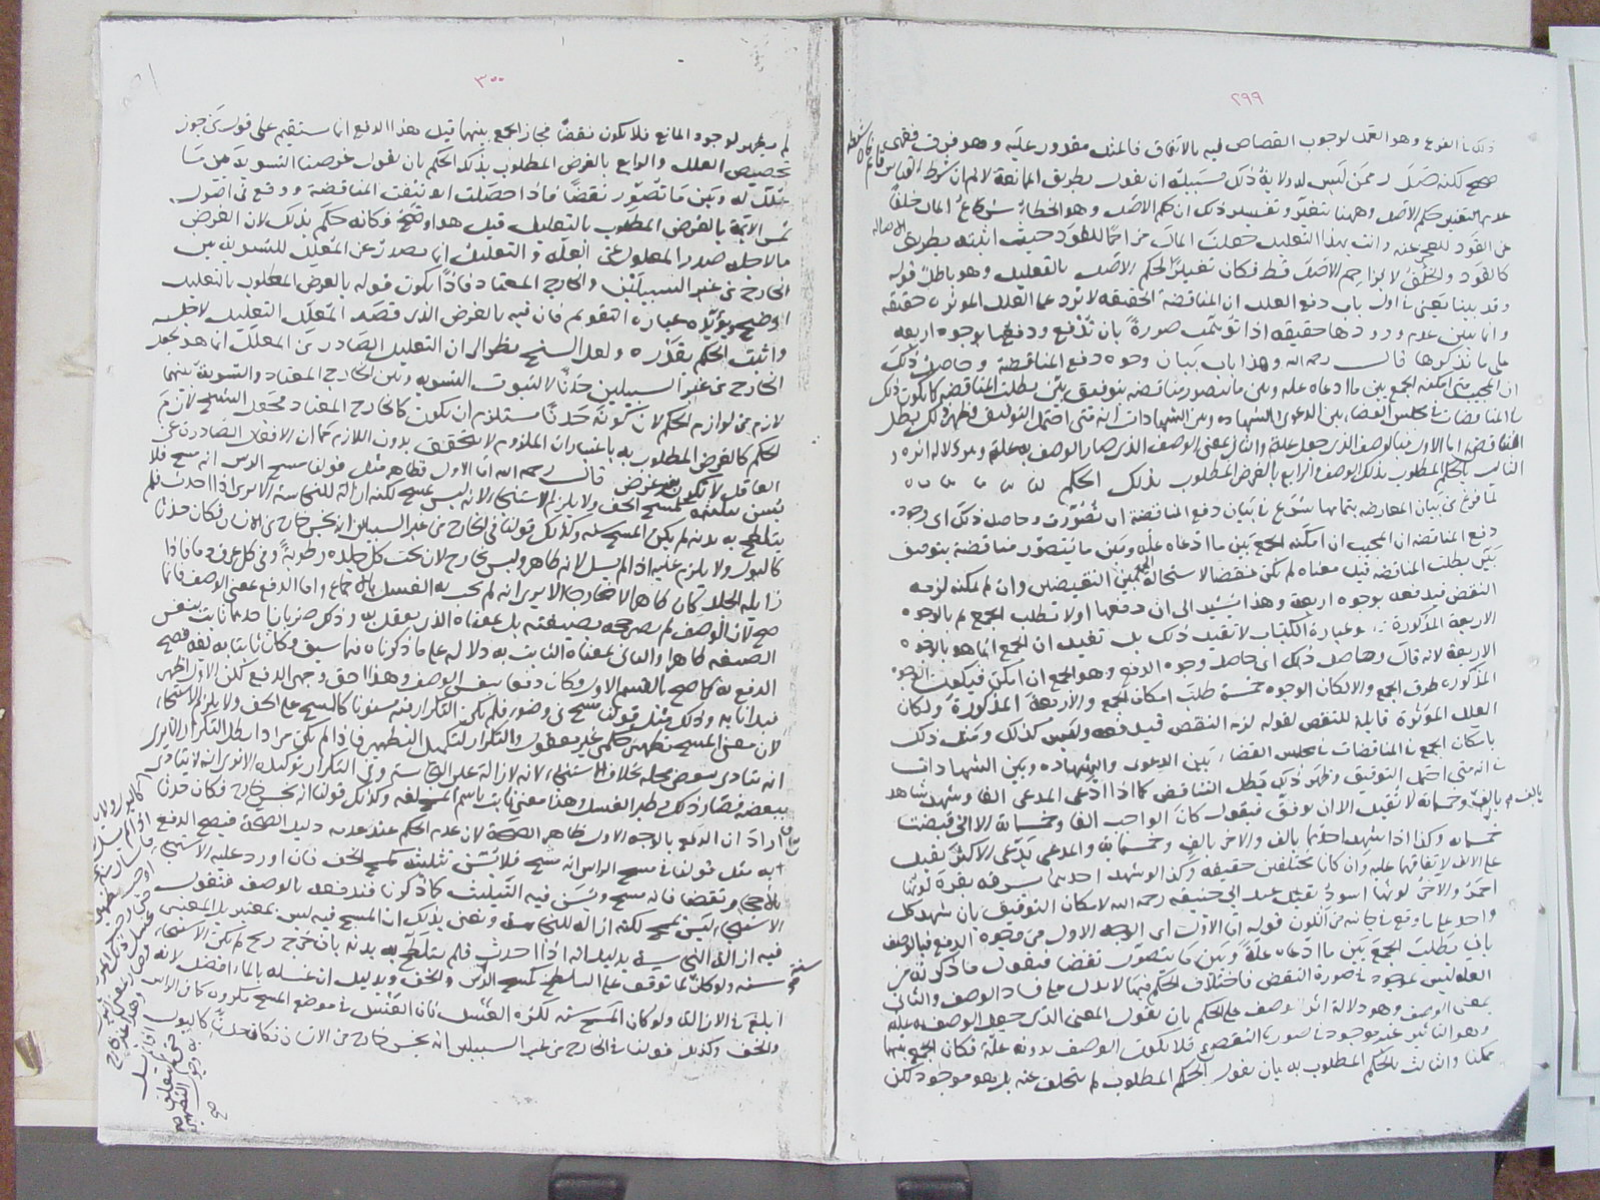 ٢٩٩
ذلك في الفرع وهو العمد لوجوب القصاص فيه بالاتفاق فالمثل مقدور عليه وهو فوق فقهي
لكنه صدر ممن ليس له ولاية ذلك فسبيله ان نقول بطريق الممانعة لا نم ان شرط القياس
عدم التغيير حكم الاصل وههنا بتغير وتفسير ذلك ان حكم الاصل وهو الخطا شرع المال خلفا
عن القود للعجز عنه وانت بهذا التعليل جعلت المال مزاحما للقود حيث اثبته بطريق الاصاله
كالقود والخلف لا يزاحم الاصل قط فكان تغييرا لحكم الاصل بالتعليل وهو باطل قوله
وقد بينا يعني في اول باب دفع العلل ان المناقضة الحقيقه لا ترد على العلل الموثره حقيقه
وانما يبين عدم ورودها حقيقه اذا توهمت صورة بان تدفع ودفعها بوجوه اربعه
على ما نذكرها قال رحمه الله وهذا باب بيان وجوه دفع المناقضة وحاصل ذلك
ان المجيب متى امكنه الجمع بين ما ادعاه علة وبين ما يتصور مناقضه بتوفيق بين بطلت المناقضه كما يكون ذلك
في المناقضات في مجلس القضاء بين الدعوى والشهاده وبين الشهادات انه متى احتمل التوفيق وظهر ذلك بطل
التناقض اما الاول فبالوصف الذي جعل علة والثاني بمعنى الوصف الذي صار الوصف به علة وهو دلالة اثره و
الثالث بالحكم المطلوب بذلك الوصف والرابع بالغرض المطلوب بذلك الحكم
لما فرغ من بيان المعارضه بتمامها شرع في بيان دفع المناقضة ان تصورت وحاصل ذلك اي وجوه
دفع المناقضة ان المجيب ان امكنه الجمع بين ما ادعاه علة وبين ما يتصور مناقضة بتوفيق
بين بطلت المناقضه قيل معناه لم تكن نقضا لاستحالة الجمع بين النقيضين وان لم يمكنه لزمه
النقض فيدفعه بوجوه اربعة وهذا يشير الى ان دفعها اولا بطلب الجمع ثم بالوجوه
الاربعة المذكورة وعبارة الكتاب لا تفيد ذلك بل تفيد ان الجمع انما هو بالوجوه
الاربعة لانه قال وحاصل ذلك اي حاصل وجوه الدفع وهو الجمع ان امكن فيكون الوجوه
المذكورة طرق الجمع والا لكان الوجوه خمسة طلب امكان الجمع والاربعة المذكورة ولكان
العلل الموثرة قابلة للنقض لقوله لزمه النقض قيل فيه وليس كذلك ومثل ذلك
بامكان الجمع في المناقضات في مجلس القضاء بين الدعوى والشهاده وبين الشهادات
انه متى احتمل التوفيق وظهر ذلك بطل التناقض كما اذا ادعى المدعي الفا وشهد شاهد
بالف وخمسمائة لا تقبل الا ان يوفق فيقول كان الواجب الفا وخمسمائة الا اني قبضت
خمسمائه وكذا اذا شهد احدهما بالف والاخر بالف وخمسمائة والمدعي يدعي الاكثر يقبل
على الالف لاتفاقهما عليه وان كانا مختلفين حقيقه وكذا لو شهد احدهما بسرقه بقرة لونها
احمر والاخر لونها اسود تقبل عند ابي حنيفه رحمه الله لامكان التوفيق بان شهد كل
واحد على ما وقع في جانبه من اللون قوله اما الاول اي الوجه الاول من وجوه الدفع فبالوصف
بان يطلب الجمع بين ما ادعاه علة وبين ما يتصور نقضا فيقول ما ذكرته من
العله ليس بموجود في صورة النقض فاختلاف الحكم فيهما لا يدل على فساد الوصف والثاني
بمعنى الوصف وهو دلالة اثر الوصف على الحكم بان يقول المعنى الذي جعل الوصف به علة
وهو التاثير غير موجود في صورة النقض فلا يكون الوصف بدونه علة فكان الجمع بينهما
ممكنا والثالث بالحكم المطلوب به بان يقول الحكم المطلوب لم يتخلف عنه بل هو موجود لكن
٣٠٠
لم يظهر لوجود المانع فلا يكون نقضا فجاز الجمع بينهما قيل هذا الدفع انما يستقيم على قول من جوز
تخصيص العلل والرابع بالغرض المطلوب بذلك الحكم بان يقول غرضنا التسوية بين ما
علل له وبين ما تصور نقضا فاذا حصلت انتفت المناقضة ووقع في اصول
شمس الائمة بالغرض المطلوب بالتعليل قيل هذا اوضح فكانه حكم بذلك لان الغرض
ما لاجله صدر المعلول عن العلة والتعليل انما يصدر عن المعلل للتسوية بين
الخارج من غير السبيلين والخارج المعتاد فاذا يكون قوله بالغرض المطلوب بالتعليل
اوضح ويؤيده عبارة التقويم فان فيه بالغرض الذي قصد المعلل التعليل لاجله
واثبت الحكم بقدره ولعل الشيخ نظر الى ان التعليل الصادر من المعلل انما هو بجعل
الخارج من غير السبيلين حدثا لا لثبوت التسوية وبين الخارج المعتاد والتسوية بينهما
لازم من لوازم الحكم لان كونه حدثا يستلزم ان يكون كالخارج المعتاد فجعل الشيخ لازم
الحكم كالغرض المطلوب به باعتبار ان الملزوم لا يتحقق بدون اللازم كما ان الافعال الصادرة عن
العاقل لا تكون بدون غرض قال رحمه الله اما الاول فظاهر مثل قولنا مسح الراس انه مسح فلا
يسن تثليثه كمسح الخف ولا يلزم الاستنجاء لانه ليس بمسح لكنه ازالة للنجاسة الا يرى اذا احدث فلم
يتلطخ به بدنه لم يكن المسح سنة وكذلك قولنا في الخارج من غير السبيلين انه نجس خارج من الانسان فكان حدثا
كالبول ولا يلزم عليه اذا لم يسل لانه ظاهر وليس بخارج لان تحت كل جلدة رطوبة وفي كل عرق دما فاذا
زايله الجلد كان ظاهرا لا خارجا الا يرى انه لم يجب به الغسل بالاجماع واما الدفع بمعنى الوصف فانما
صح لان الوصف لم يصر حجة بصيغته بل بمعناه الذي يعقل به وذلك ضربان احدهما ثابت بنفس
الصيغه ظاهرا والثاني بمعناه الثابت به دلالة على ما ذكرناه فيما سبق وكان ثابتا به لغة فصح
الدفع به كما صح بالقسم الاول فكان دفعا بنفس الوصف وهذا احق وجهي الدفع لكن الاول اظهر
فبدانا به وذلك مثل قولنا مسح في وضوء فلم يكن التكرار فيه مسنونا كالمسح على الخف ولا يلزم الاستنجاء
لان معنى المسح تطهير حكمي غير معقول والتكرار لتكميل التطهير فاذا لم يكن مرادا بطل التكرار الا يرى
انه يتادى ببعض محله بخلاف الاستنجاء لانه لازالة عين النجاسة وفي التكرار توكيده الا يرى انه لا يتادى
ببعضه فصار ذلك نظير الغسل وهذا معنى ثابت باسم المسح لغة وكذلك قولنا انه نجس خارج فكان حدثا
اراد ان الدفع بالوجه الاول ظاهر الصحة لان عدم الحكم عند عدم دليل الصحة فيصح الدفع
به مثل قولنا في مسح الراس انه مسح فلا يسن تثليثه كمسح الخف فان اورد عليه الاستنجاء
بالاحجار نقضا فانه مسح ويسن فيه التثليث كما ذكرنا فندفعه بالوصف فنقول
الاستنجاء ليس بمسح لكنه ازالة للنجاسة ونعني بذلك ان المسح فيه ليس بمعتبر بل المعتبر
فيه ازالة النجاسة بدليل انه اذا احدث فلم يتلطخ به بدنه بان خرج ريح لم يكن الاستنجاء
سنه ولو كان لما توقف على التلطخ كمسح الراس والخف وبدليل ان غسله بالماء افضل لانه
ابلغ في الازالة ولو كان المسح سنة لكره الغسل فان الغسل في موضع المسح مكروه كان الراس
والخف وكذلك قولنا في الخارج من غير السبيلين انه نجس خارج من الانسان فكان حدثا كالبول